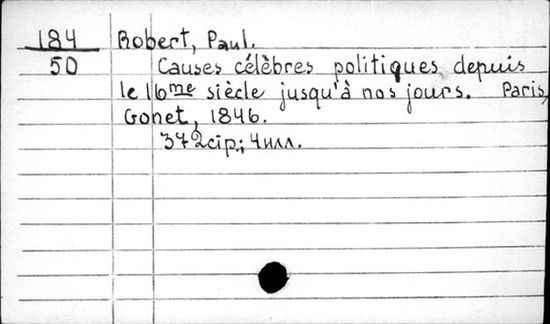 184 Robert, Paul.
50 Causes célèbres politiques depuis
le 16me siècle jusqu'à nos jours. Paris,
Gonet, 1846.
372 стр.; 4 илл.